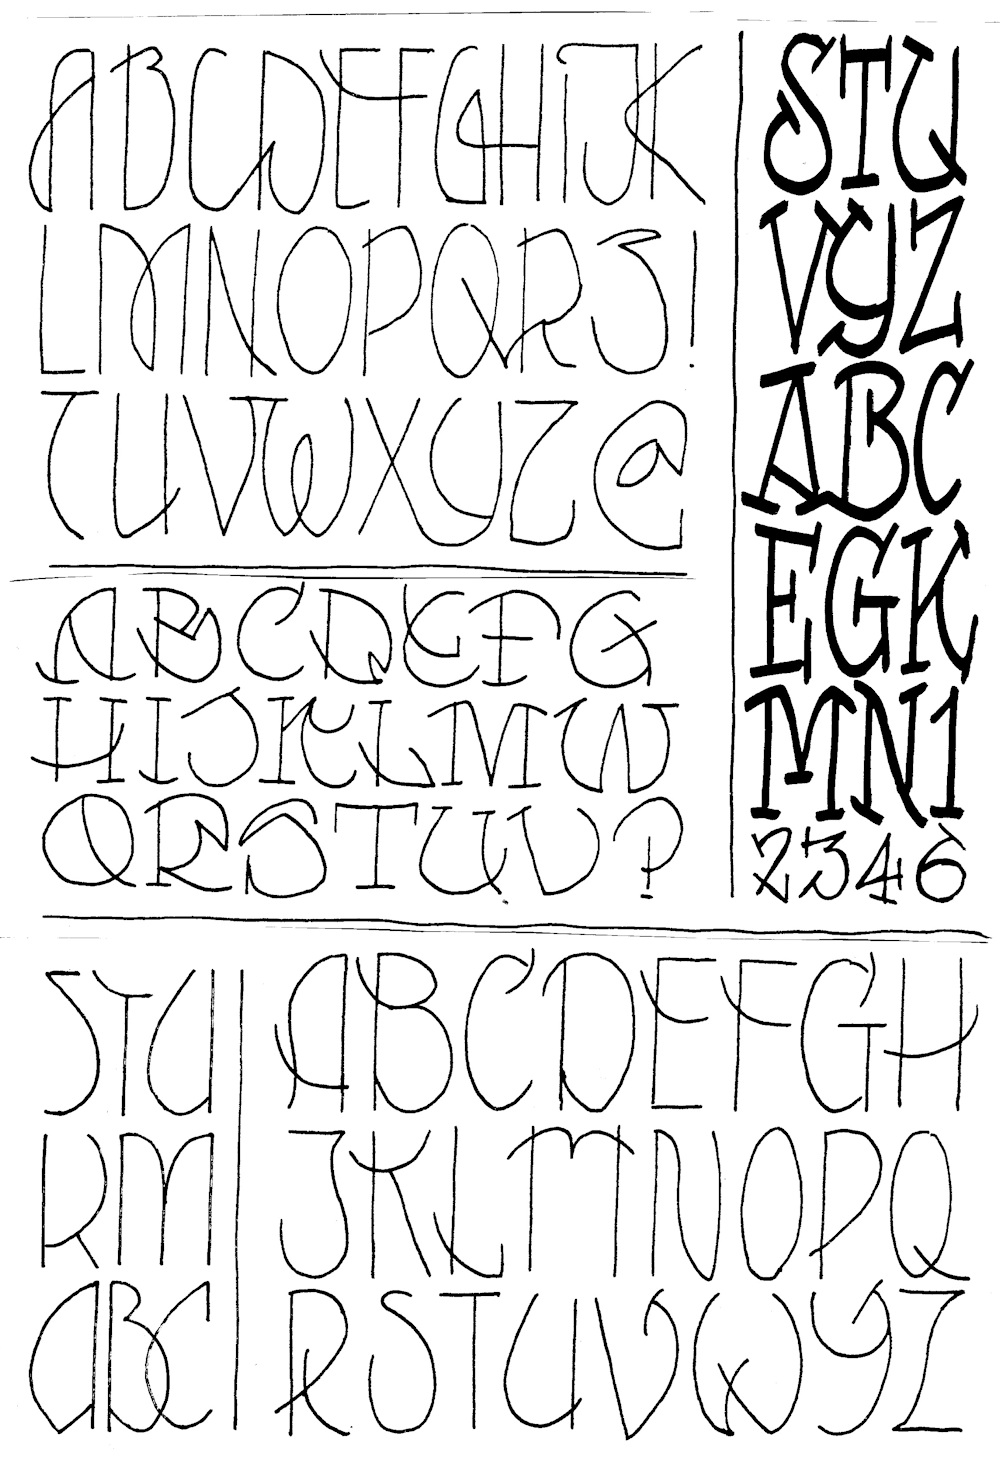 ABCDEFGHIJK
LMNOPQRS!
TUVWXYZ@
ABCDEFG
HIJKLMW
QRSTUV?
STU
VYZ
ABC
EGK
MN1
2346
STU
RM
ABC
ABCDEFGH
JKLMNOPQ
RSTUVWYZ